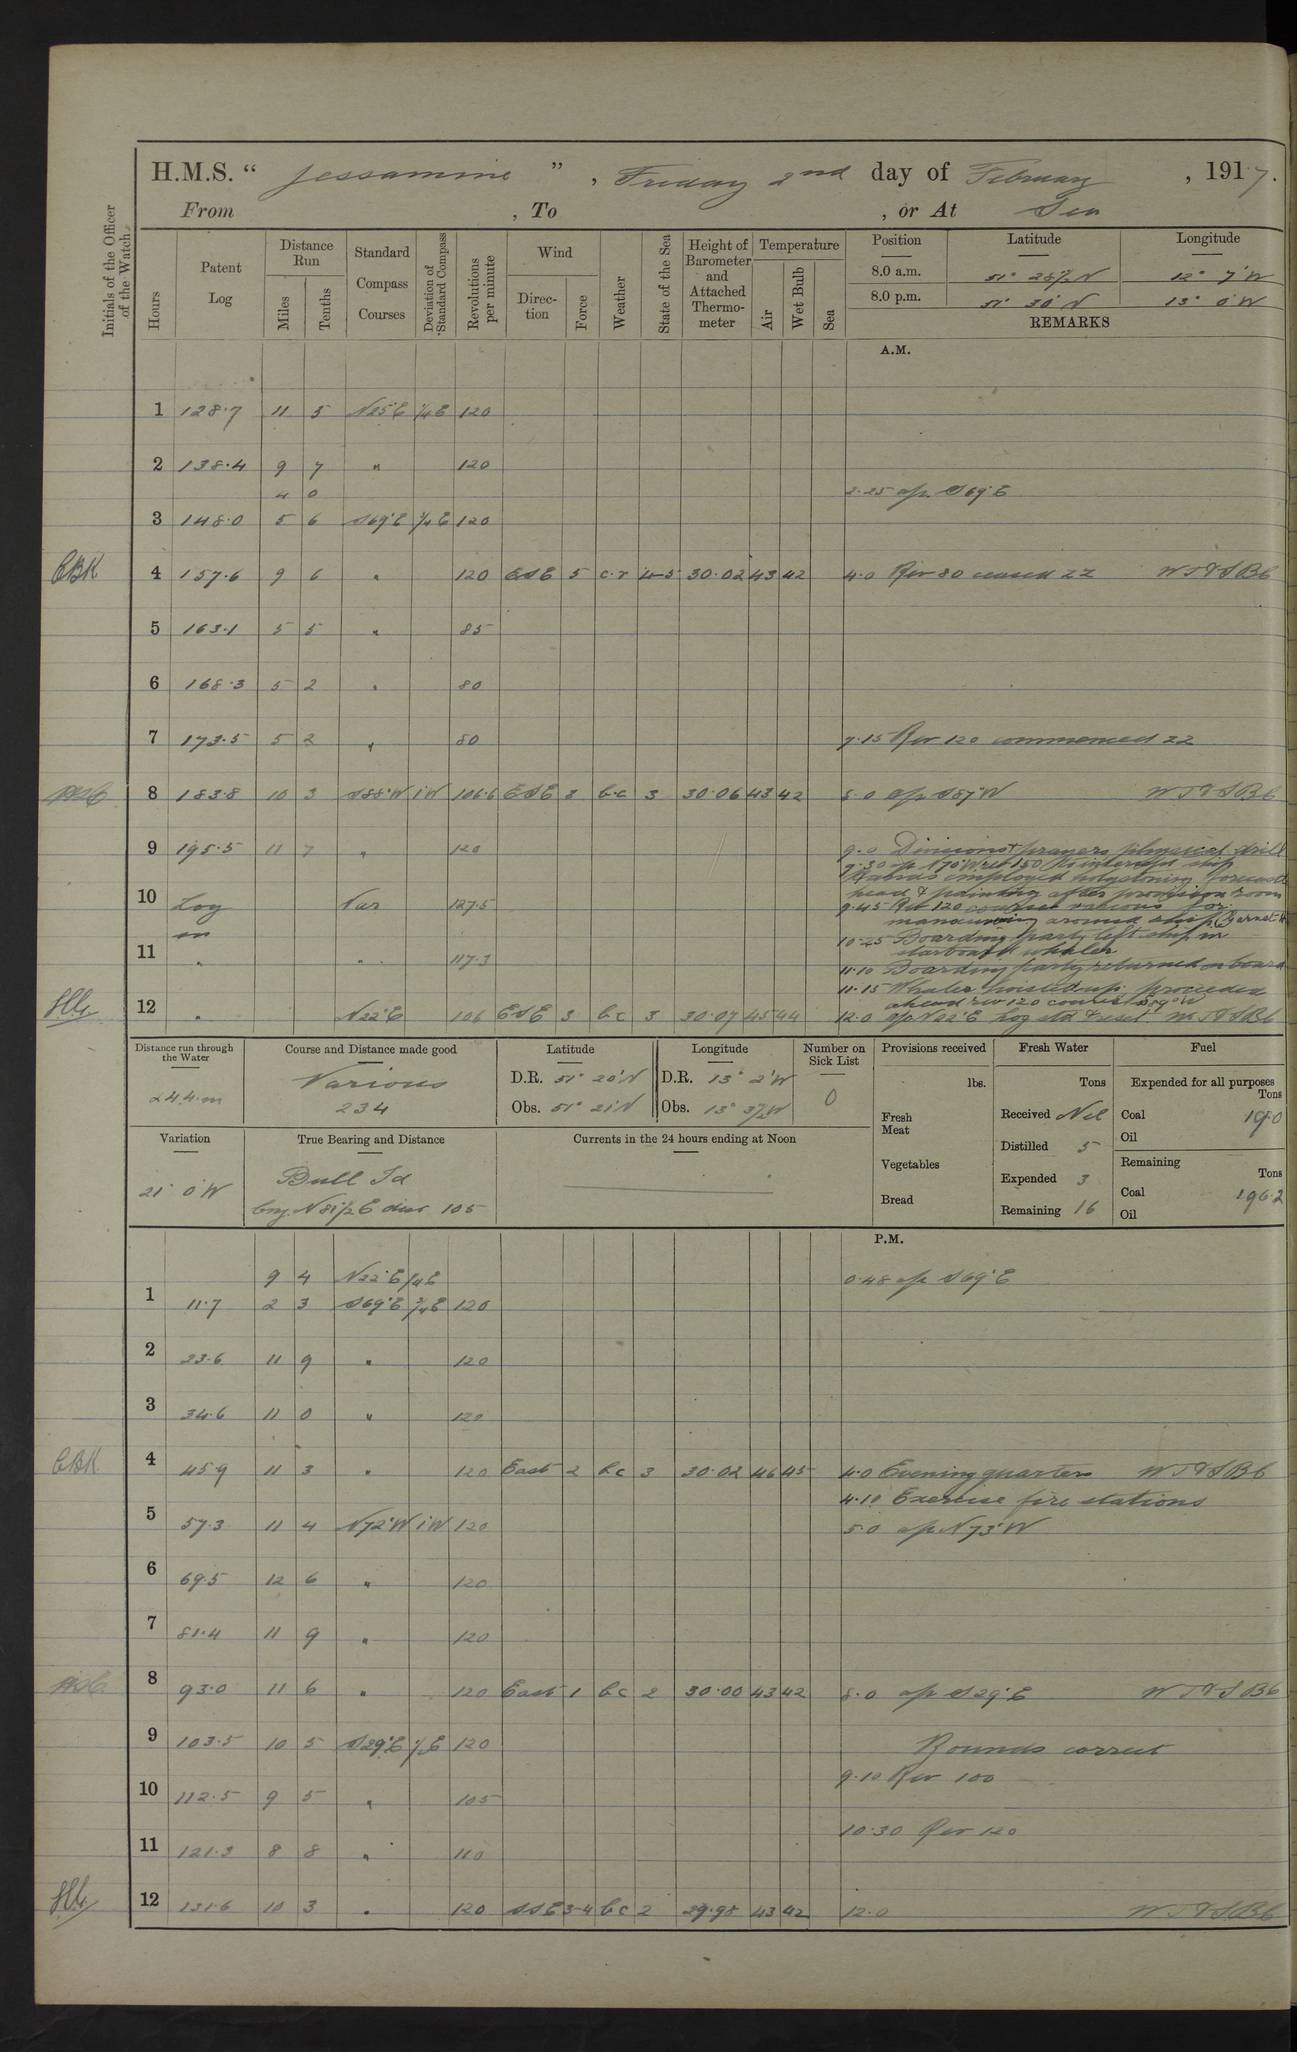 H.M.S. “ Jessamine ” , Friday 2nd day of February , 1917.
From , To , or At Sea
Initials of the Officer of the Watch.
Hours
Patent Log
Distance Run
Miles
Tenths
Standard Compass Courses
Deviation of Standard Compass
Revolutions per minute
Wind
Direction
Force
Weather
State of the Sea
Height of Barometer and Attached Thermometer
Temperature
Air
Wet Bulb
Sea
Position Latitude Longitude
8.0 a.m. 51° 28½ N 12° 7' W
8.0 p.m. 51° 30' N 13° 0' W
REMARKS
A.M.
1 128.7 11 5 N25°E ¼E 120
2 138.4 9 7 " 120
4 0 2.25 a/c S69°E
3 148.0 5 6 S69°E ¾E 120
CBK 4 157.6 9 6 " 120 ESE 5 c.r 4-5 30.02 43 42 4.0 Rev 80 ceased ZZ W T & S B6
5 163.1 5 5 " 85
6 168.3 5 2 " 80
7 173.5 5 2 " 80 7.15 Rev 120 commenced ZZ
8 183.8 10 3 S88°W 1W 106.6 ESE 3 b.c 3 30.06 43 42 8.0 a/c S87°W W T & S B6
9 195.5 11 7 " 120 9.0 Divisions & prayers physical drill
9.30 a/c N70°W rev 150 to intercept ship
Hands employed holystoning forecastle
head & painting after provision room
10 Log Var 127.5 9.45 Rev 120 courses various for
on manoeuvring around ship
10.25 Boarding party left ship in
starboard whaler
11 " " 117.3 11.10 Boarding party returned on board
11.15 Whaler hoisted up. proceeded
ahead rev 120 course
12 " N22°E 106 ESE 3 bc 3 30.07 45 44 12.0 a/c N22°E Log std & reset W T & S B6
Distance run through the Water
244.m
Course and Distance made good
Various
234
Latitude
D.R. 51° 20' N
Obs. 51° 21' N
Longitude
D.R. 13° 2' W
Obs. 13° 3½ W
Number on Sick List
0
Provisions received
lbs.
Fresh Meat
Vegetables
Bread
Fresh Water
Tons
Received Nil
Distilled 5
Expended 3
Remaining 16
Fuel
Expended for all purposes
Tons
Coal 19.0
Oil
Remaining
Tons
Coal 196.2
Oil
Variation
21° 0' W
True Bearing and Distance
Bull Id
brg. N81½E dist 105
Currents in the 24 hours ending at Noon
P.M.
9 4 N22°E ¼E 0.48 a/c S69°E
1 11.7 2 3 S69°E ¾E 120
2 23.6 11 9 " 120
3 34.6 11 0 " 120
CBK 4 45.9 11 3 " 120 East 2 bc 3 30.02 46 45 4.0 Evening quarters W T & S B6
4.10 Exercise fire stations
5 57.3 11 4 N72°W 1W 120 5.0 a/c N73°W
6 69.5 12 6 " 120
7 81.4 11 9 " 120
8 93.0 11 6 " 120 East 1 bc 2 30.00 43 42 8.0 a/c S29°E W T & S B6
9 103.5 10 5 S29°E ½E 120 Rounds correct
9.10 Rev 100
10 112.5 9 5 " 105
10.30 Rev 120
11 121.3 8 8 " 110
12 131.6 10 3 " 120 SSE 3-4 bc 2 29.98 43 42 12.0 W T & S B6